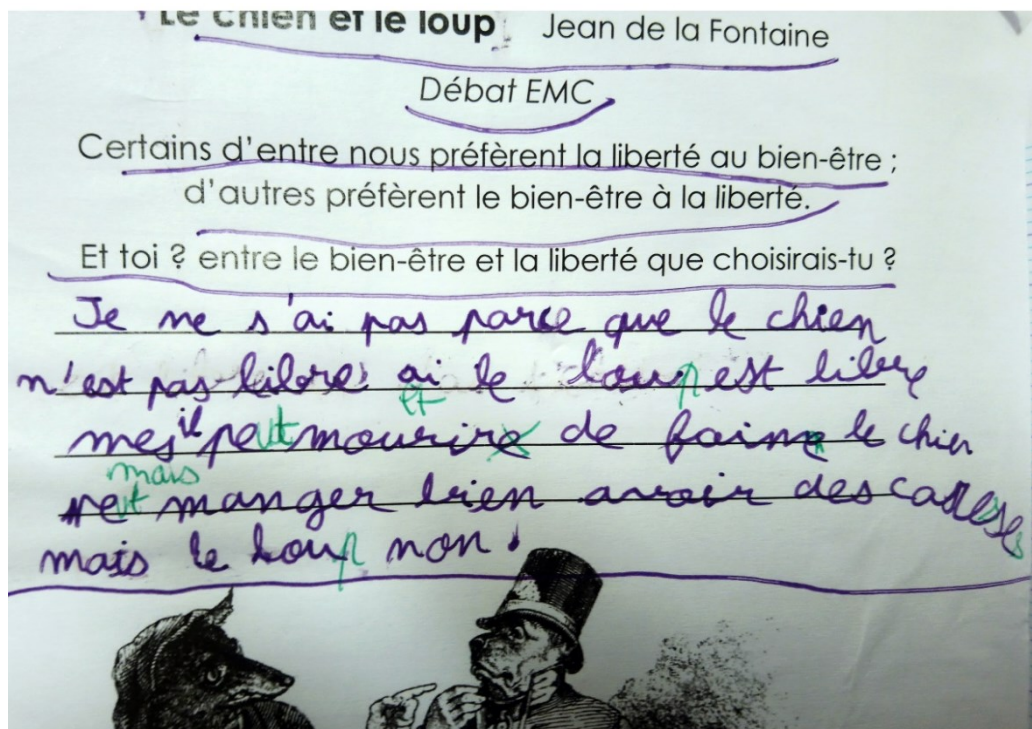 Le chien et le loup Jean de la Fontaine
Débat EMC
Certains d'entre nous préfèrent la liberté au bien-être ;
d'autres préfèrent le bien-être à la liberté.
Et toi ? entre le bien-être et la liberté que choisirais-tu ?
Je ne s'ai pas parce que le chien
n'est pas libre ai le loup est libre
et
mes il peut mourire de faim le chien
mais
peut manger bien avoir des caresses
mais le loup non.